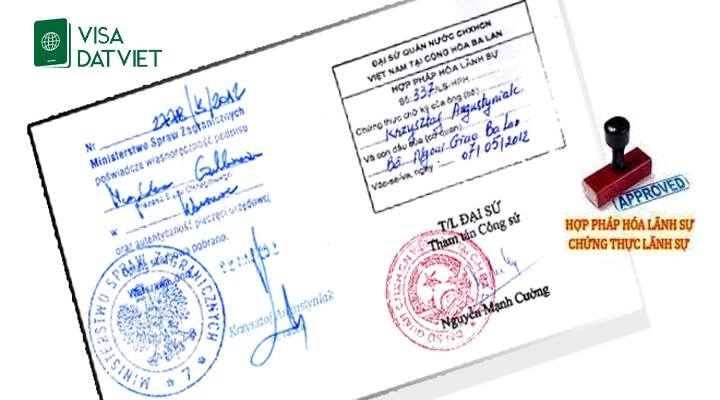 VISA
DATVIET
Nr 2778/K/2012
Ministerstwo Spraw Zagranicznych
poświadcza własnoręczność podpisu
w Warszawie
oraz autentyczność pieczęci urzędowej
pobrano.
Krzysztof Augustyniak
MINISTERSTWO SPRAW ZAGRANICZNYCH
* 7 *
ĐẠI SỨ QUÁN NƯỚC CHXHCN
VIỆT NAM TẠI CỘNG HÒA BA LAN
HỢP PHÁP HÓA LÃNH SỰ
Số: 337/LS-HPH
Chứng thực chữ ký của ông (bà)
Krzysztof Augustyniak
Và con dấu của (cơ quan)
Bộ Ngoại Giao Ba Lan
Vác-sa-va, ngày 07/05/2012
T/L ĐẠI SỨ
Tham tán Công sứ
Nguyễn Mạnh Cường
APPROVED
HỢP PHÁP HÓA LÃNH SỰ
CHỨNG THỰC LÃNH SỰ